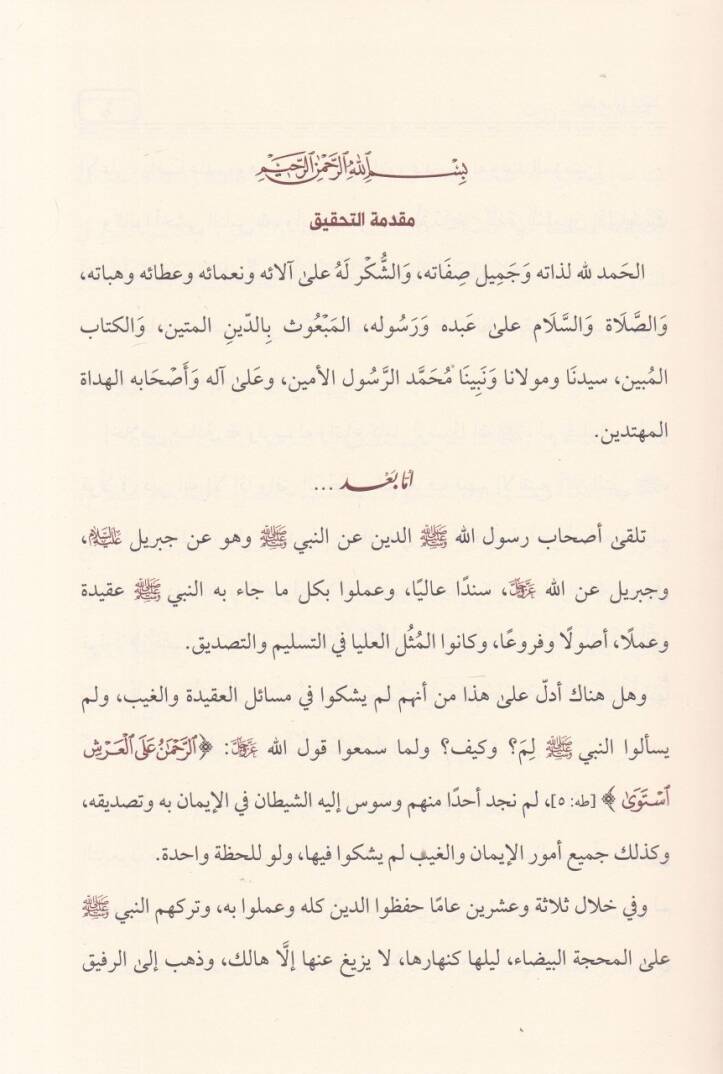 بِسْمِ اللهِ الرَّحْمٰنِ الرَّحِيْمِ
مقدمة التحقيق
الحَمد لله لذاته وَجَمِيل صِفَاته، وَالشُّكْر لَهُ علىٰ آلائه ونعمائه وعطائه وهباته،
وَالصَّلَاة وَالسَّلَام علىٰ عَبده وَرَسُوله، المَبْعُوث بِالدّينِ المتين، وَالكتاب
المُبين، سيدنَا ومولانا وَنَبِينَا مُحَمَّد الرَّسُول الأمين، وعَلىٰ آله وَأَصْحَابه الهداة
المهتدين.
أمَّا بَعْد ...
تلقىٰ أصحاب رسول الله ﷺ الدين عن النبي ﷺ وهو عن جبريل عليه السلام،
وجبريل عن الله عز وجل، سندًا عاليًا، وعملوا بكل ما جاء به النبي ﷺ عقيدة
وعملًا، أصولًا وفروعًا، وكانوا المُثُل العليا في التسليم والتصديق.
وهل هناك أدلّ علىٰ هذا من أنهم لم يشكوا في مسائل العقيدة والغيب، ولم
يسألوا النبي ﷺ لِمَ؟ وكيف؟ ولما سمعوا قول الله عز وجل: ﴿الرَّحْمَٰنُ عَلَى الْعَرْشِ
اسْتَوَىٰ﴾ [طه: ٥]، لم نجد أحدًا منهم وسوس إليه الشيطان في الإيمان به وتصديقه،
وكذلك جميع أمور الإيمان والغيب لم يشكوا فيها، ولو للحظة واحدة.
وفي خلال ثلاثة وعشرين عامًا حفظوا الدين كله وعملوا به، وتركهم النبي ﷺ
علىٰ المحجة البيضاء، ليلها كنهارها، لا يزيغ عنها إلَّا هالك، وذهب إلىٰ الرفيق